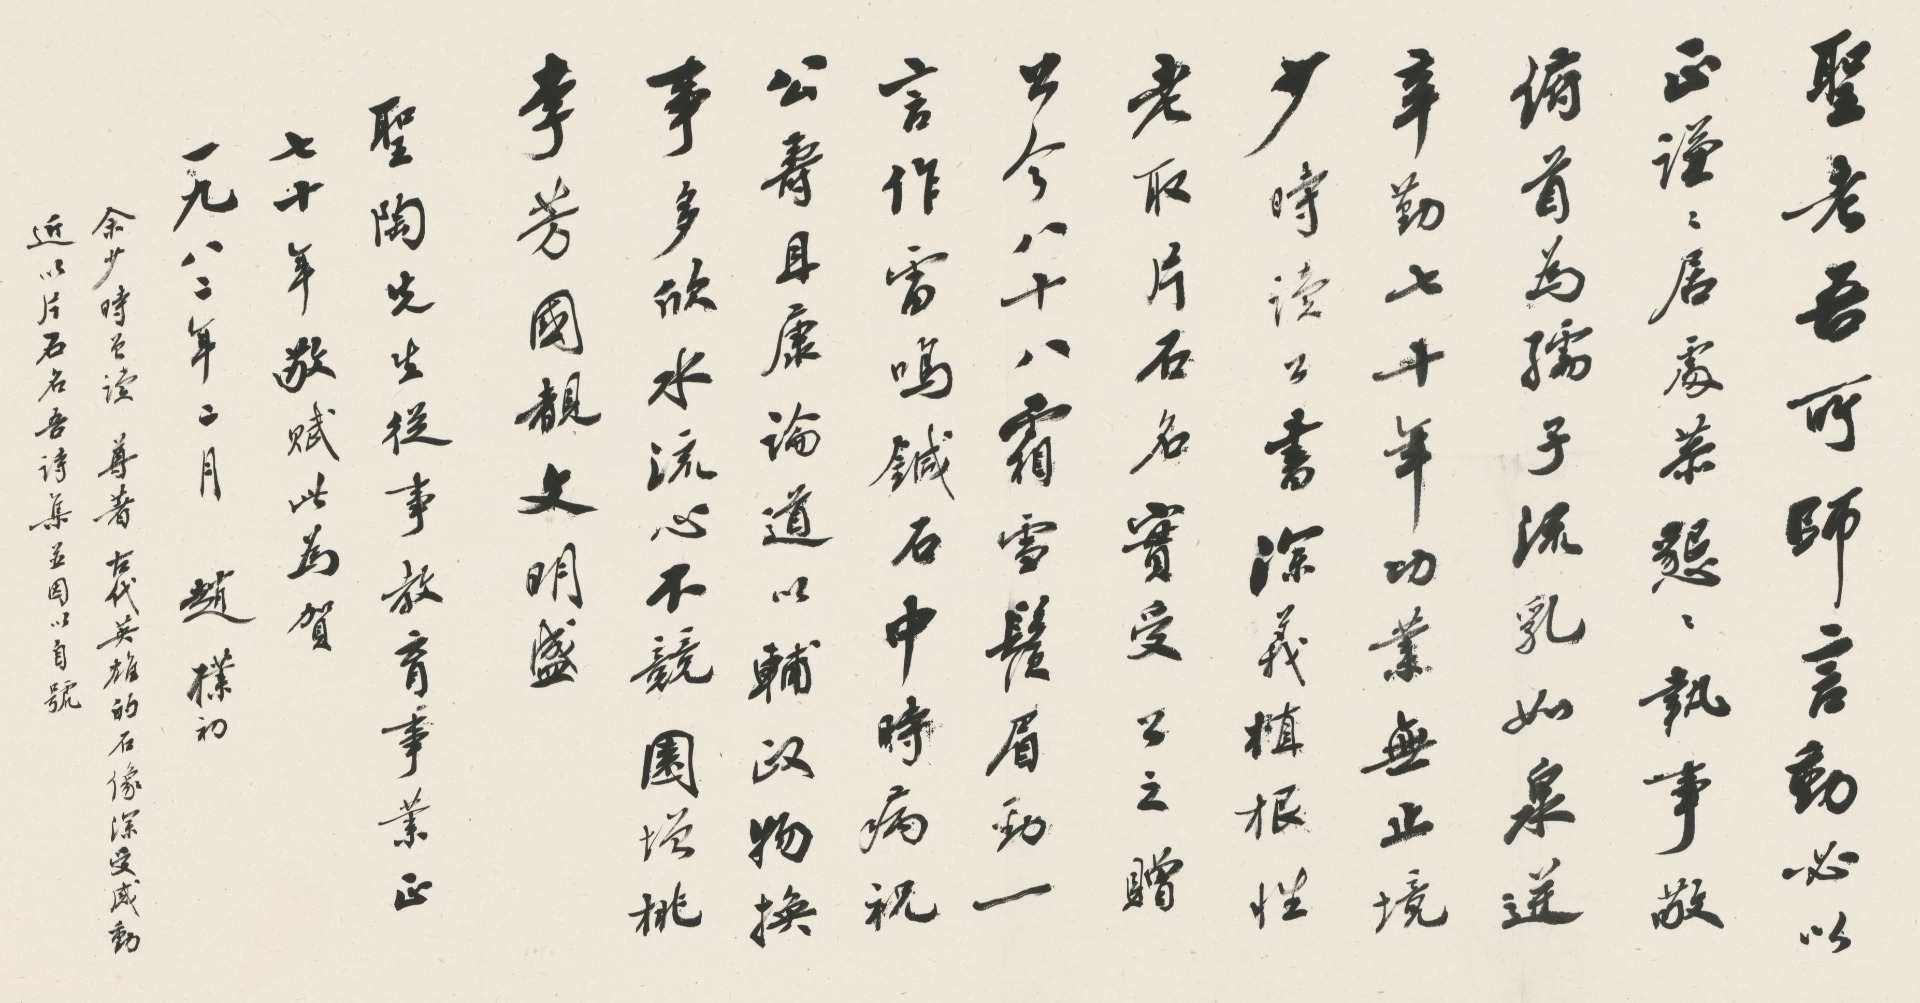 聖老吾所師言動必以
正謹〻居處恭懇〻執事敬
俯首為孺子流乳如泉迸
辛勤七十年功業無止境
少時讀公書深義植根性
老取片石名實受公之贈
公今八十八霜雪鬢眉勁一
言作雷鳴鍼石中時病祝
公壽且康論道以輔政物換
事多欣水流心不競園增桃
李芳國靚文明盛
聖陶先生從事教育事業正
七十年敬賦此為賀
一九八二年二月 趙樸初
余少時曾讀 尊著古代英雄的石像深受感動
近以片石名吾詩集並因以自號